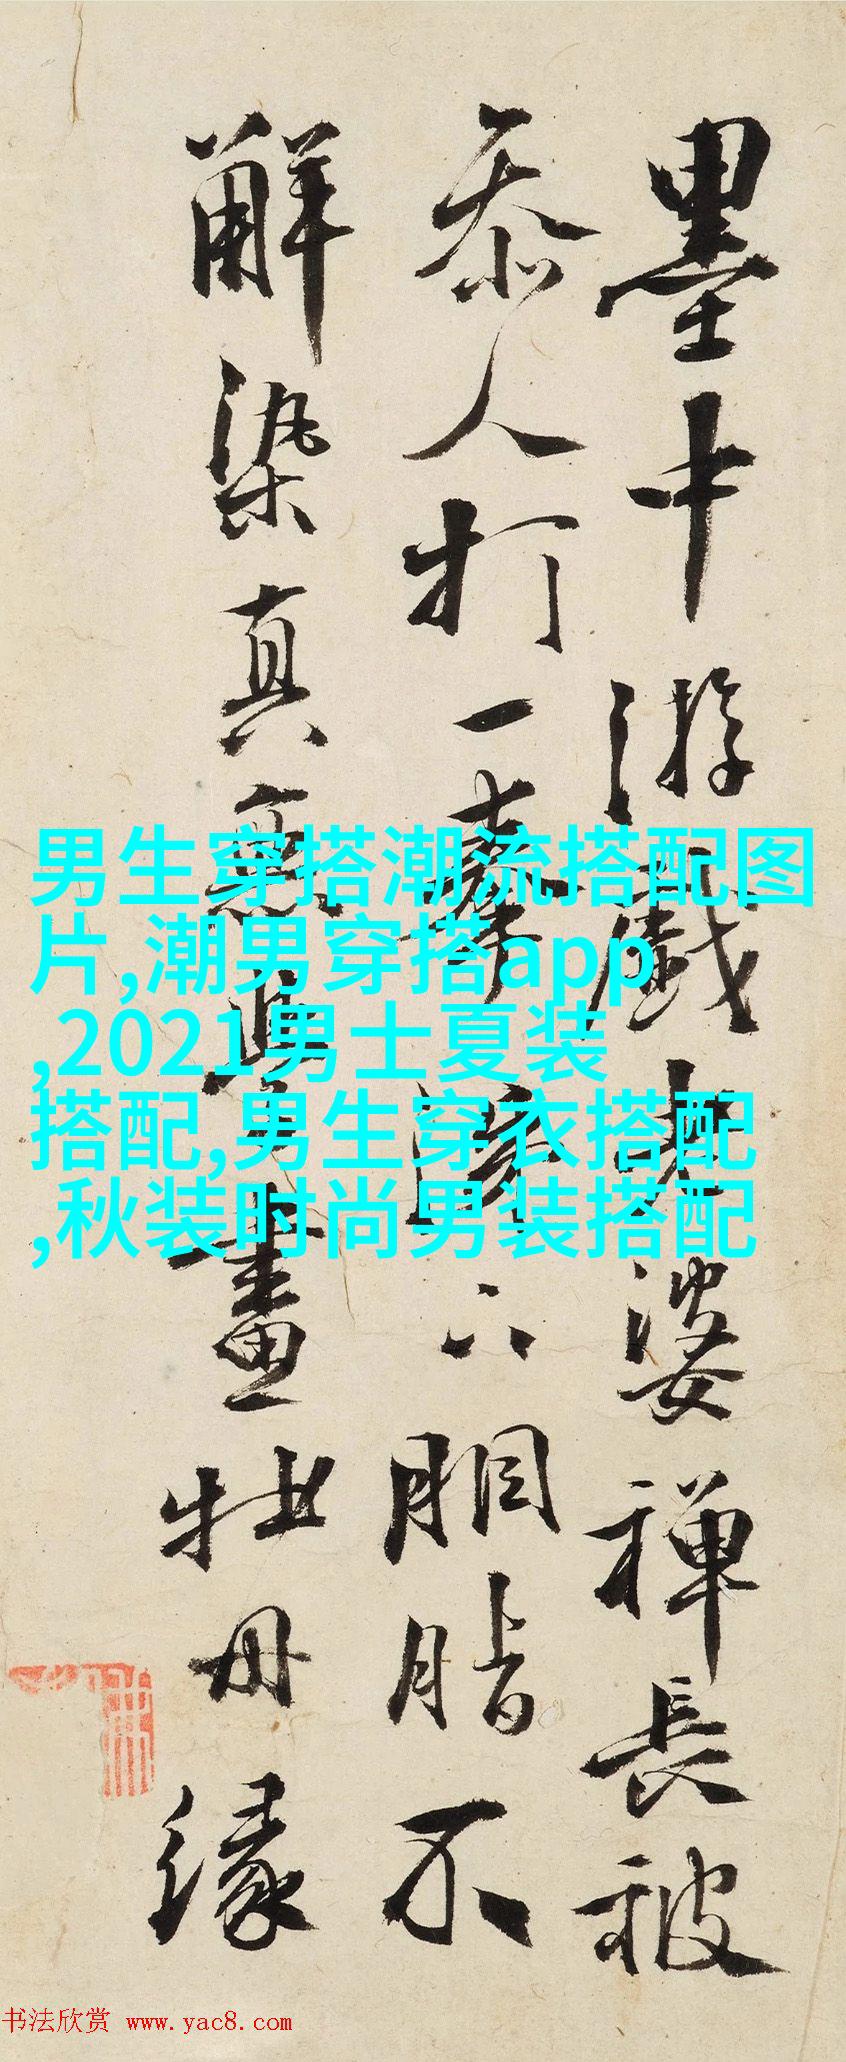 墨中游戲老婆禪長被
人打一下胭脂不
解染真無學畫牡丹緣
男生穿搭潮流搭配图
片,潮男穿搭app
,2021男士夏装
搭配,男生穿衣搭配
,秋装时尚男装搭配
书法欣赏 www.yac8.com